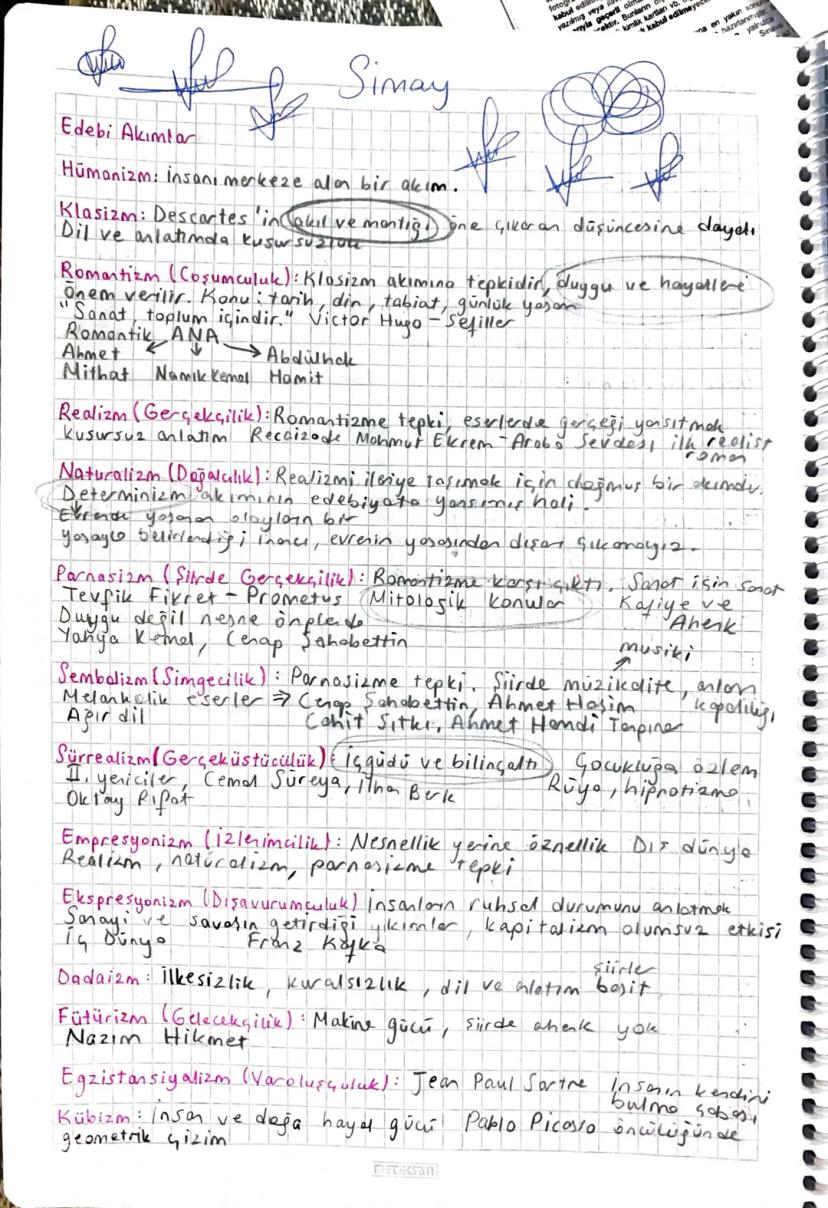 Simay
Edebi Akımlar
Hümanizm: İnsanı merkeze alan bir akım.
Klasizm: Descartes'in akıl ve mantığı öne çıkaran düşüncesine dayalı
Dil ve anlatımda kusursuzluk
Romantizm (Coşumculuk): Klasizm akımına tepkidir, duygu ve hayallere
önem verilir. Konu: tarih, din, tabiat, günlük yaşam
"Sanat, toplum içindir." Victor Hugo - Sefiller
Romantik ANA
Ahmet Abdülhak
Mithat Namık Kemal Hamit
Realizm (Gerçekçilik): Romantizme tepki, eserlerde gerçeği yansıtmak
kusursuz anlatım Recaizade Mahmut Ekrem - Araba Sevdası ilk realist
roman
Naturalizm (Doğalcılık): Realizmi ileriye taşımak için doğmuş bir akımdır.
Determinizm akımının edebiyata yansımış hali.
Evrende yaşanan olayların bir
yasayla belirlendiği inancı, evrenin yasasından dışarı çıkamayız.
Parnasizm (Şiirde Gerçekçilik): Romantizme karşı çıktı. Sanat için sanat
Tevfik Fikret - Prometus Mitolojik konular Kafiye ve
Duygu değil nesne önplanda Ahenk
Yahya Kemal, Cenap Şahabettin
musiki
Sembolizm (Simgecilik): Parnasizme tepki. Şiirde müzikalite, anlam
Melankolik eserler ⇒ Cenap Şahabettin, Ahmet Haşim kapalılığı
Ağır dil Cahit Sıtkı, Ahmet Hamdi Tanpınar
Sürrealizm (Gerçeküstücülük): İçgüdü ve bilinçaltı Çocukluğa özlem
II. yeniciler, Cemal Süreya, İlhan Berk Rüya, hipnotizma
Oktay Rifat
Empresyonizm (İzlenimcilik): Nesnellik yerine öznellik Dış dünya
Realizm, natüralizm, parnasizme tepki
Ekspresyonizm (Dışavurumculuk) İnsanların ruhsal durumunu anlatmak
Sanayi ve savaşın getirdiği yıkımlar, kapitalizm olumsuz etkisi
İç Dünya Franz Kafka
şiirler
Dadaizm: İlkesizlik, kuralsızlık, dil ve anlatım basit
Fütürizm (Gelecekçilik): Makine gücü, şiirde ahenk yok
Nazım Hikmet
Egzistansiyalizm (Varoluşçuluk): Jean Paul Sartre İnsanın kendini
bulma çabası
Kübizm: İnsan ve doğa hayal gücü Pablo Picasso öncülüğünde
geometrik çizim
METEKSAN